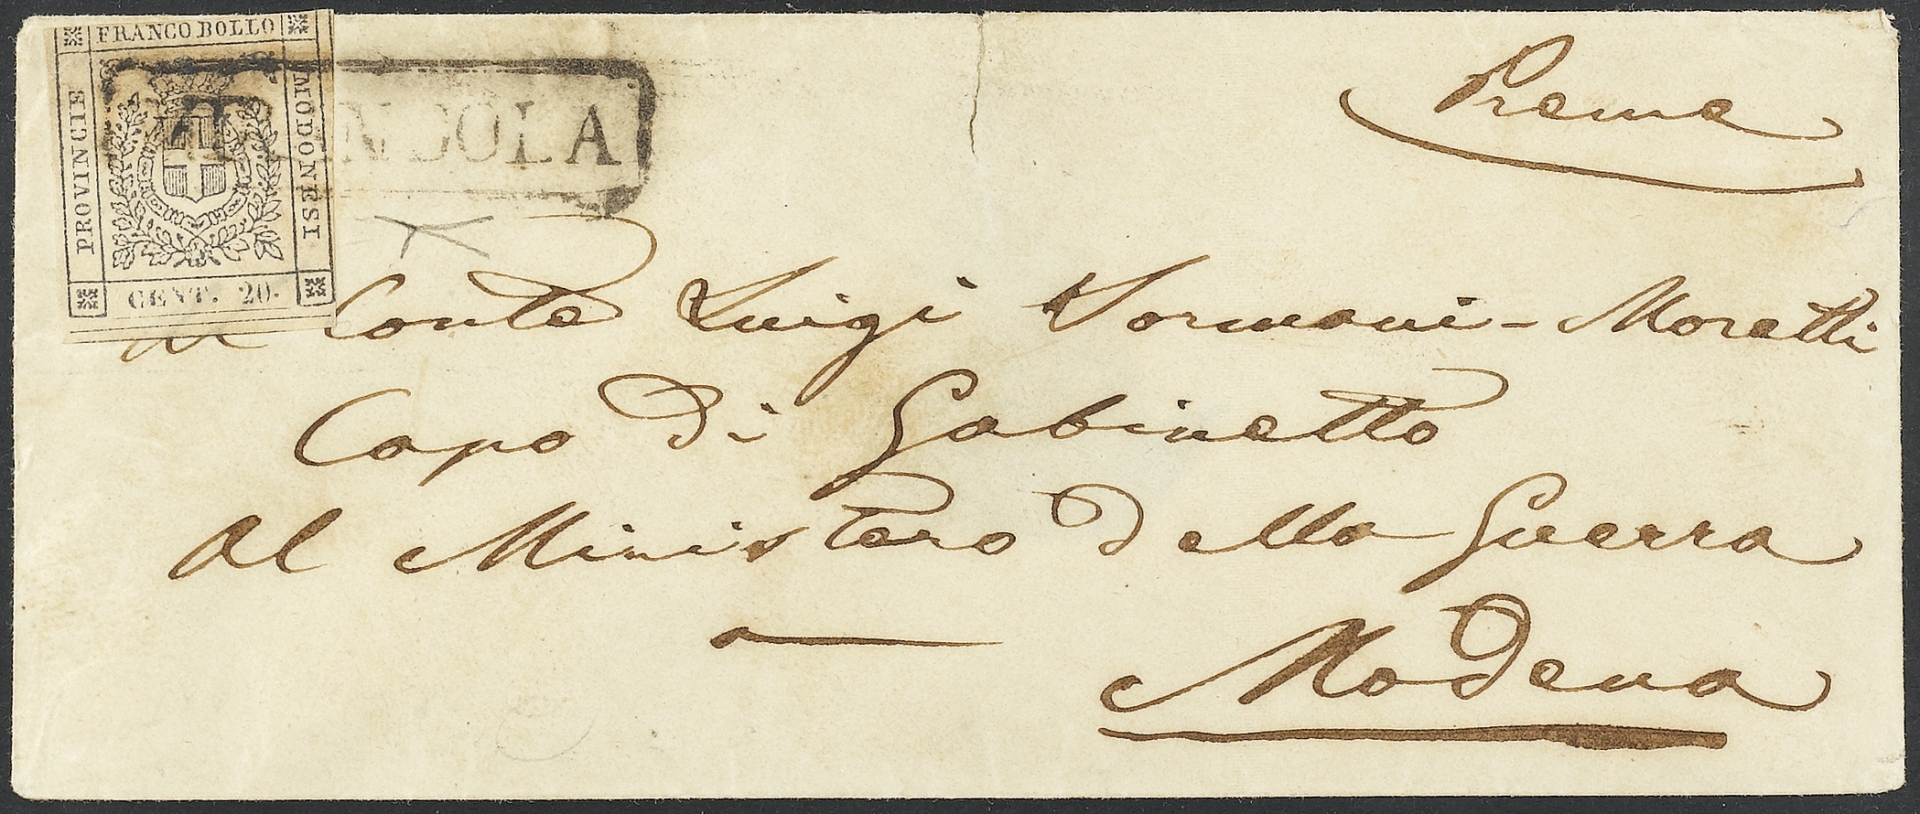 FRANCO BOLLO
PROVINCIE
MODONESI
CENT. 20.
NDOLA
Preme
Al Conte Luigi Sormani-Moretti
Capo di Gabinetto
al Ministero della Guerra
Modena